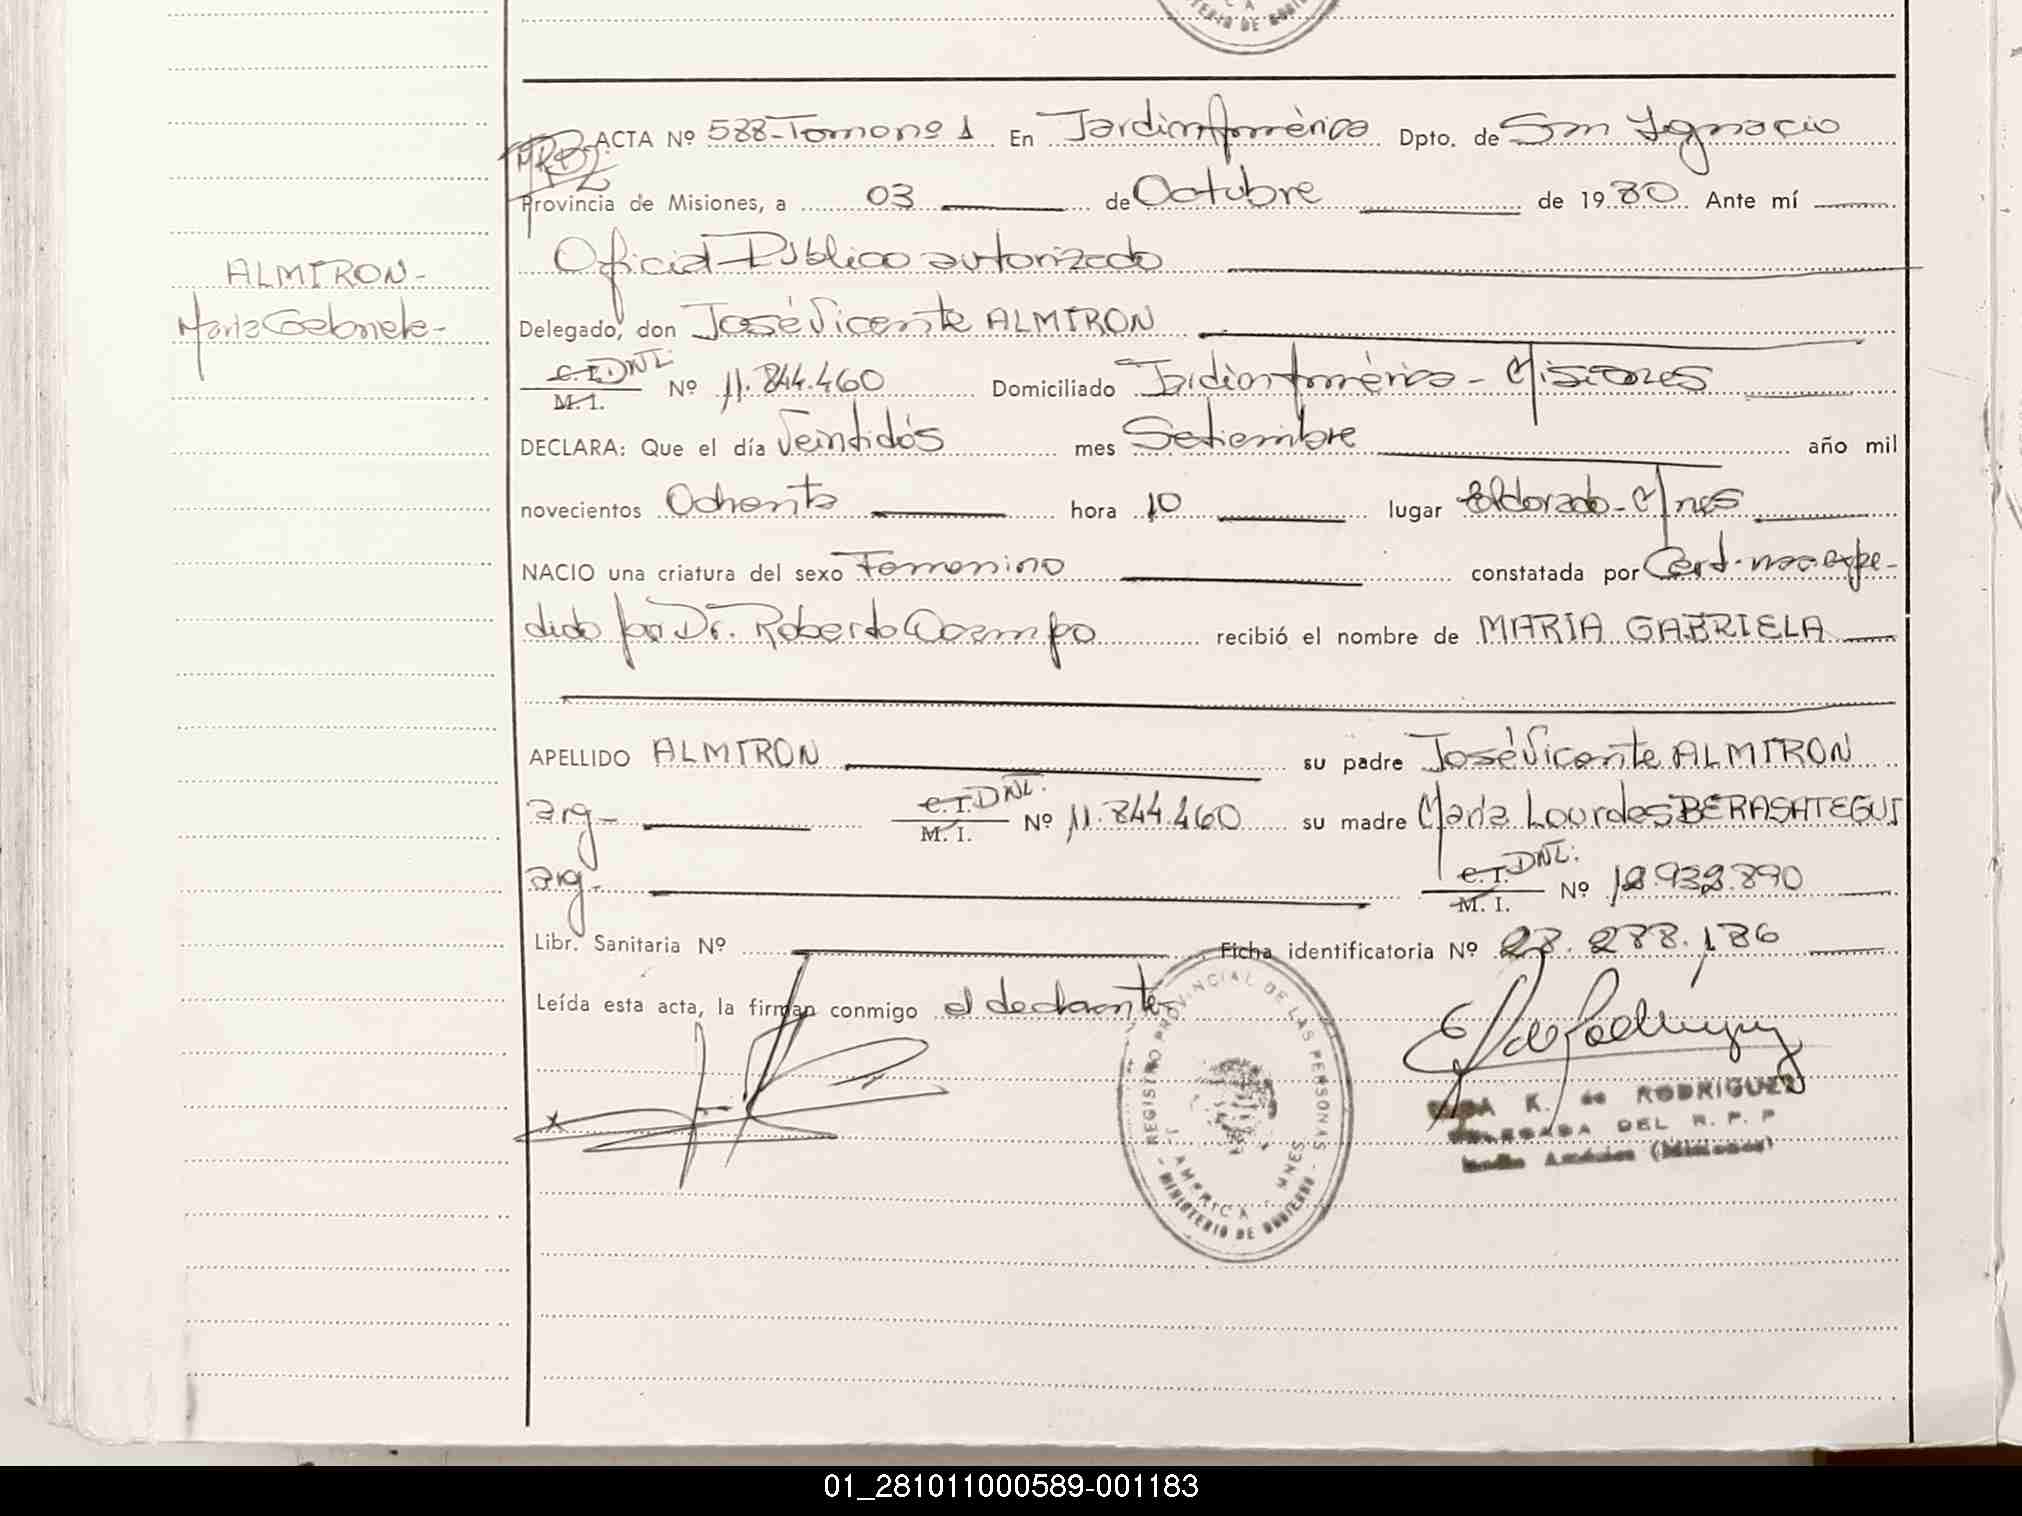 TERIO DE GOBIE
ACTA Nº 588-Tomo nº 1 En Jardin América Dpto. de San Ignacio
Provincia de Misiones, a 03 de Octubre de 1980 Ante mí
Oficial Público autorizado
ALMIRON-
Maria Gabriela-
Delegado, don José Vicente ALMIRON
C.I. DNI. M.I. Nº 11.844.460 Domiciliado Jardin América - Misiones
DECLARA: Que el día Veintidós mes Setiembre año mil
novecientos Ochenta hora 10 lugar Eldorado-Mnes
NACIO una criatura del sexo Femenino constatada por Cert. nac. expe-
dido por Dr. Roberto Ocampo recibió el nombre de MARIA GABRIELA
APELLIDO ALMIRON su padre José Vicente ALMIRON
arg- C.I. DNI. M.I. Nº 11.844.460 su madre Maria Lourdes BERASATEGUI
arg- C.I. DNI. M.I. Nº 12.932.890
Libr. Sanitaria Nº Ficha identificatoria Nº 28.288.186
Leída esta acta, la firman conmigo el declarante
REGISTRO PROVINCIAL DE LAS PERSONAS
J. AMERICA - MNES
MINISTERIO DE GOBIERNO
K. de RODRIGUEZ
DELEGADA DEL R. P. P
Jardin América (Misiones)
01_281011000589-001183